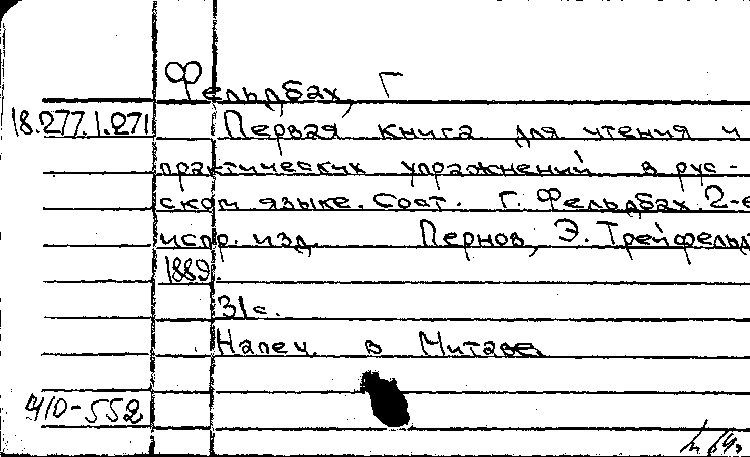 Фельдбах, Г
18.277.1.271 Первая книга для чтения и
практических упражнений в рус-
ском языке. Сост. Г. Фельдбах. 2-е
испр. изд. Пернов, Э. Трейфельдт
1889.
31 с.
Напеч. в Митаве
410-552